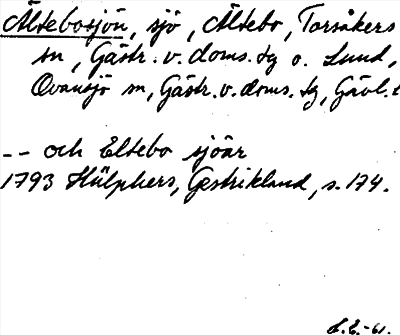 Ältebosjön, sjö, Ältebo, Torsåkers
sn, Gästr. v. doms. tg o. Lund,
Ovansjö sn, Gästr. v. doms. tg, Gävl. l
-- och Eltebo sjöar
1793 Hülphers, Gestrikland, s. 174.